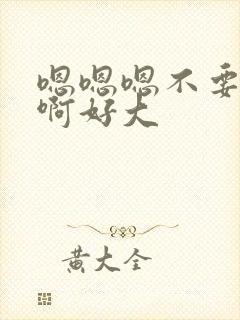 嗯嗯嗯不要
啊好大
黄大全